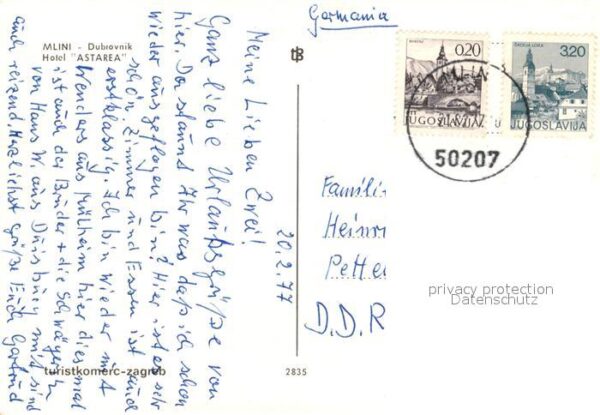 MLINI - Dubrovnik
Hotel "ASTAREA"
TB
Germania
0,20
JUGOSLAVIJA
ŠKOFJA LOKA
3,20
JUGOSLAVIJA
50207
20.2.77
Meine Lieben Zwei!
Ganz liebe Urlaubsgrüße von
hier. Da staunt Ihr was daß ich schon
wieder ausgeflogen bin? Hier ist es sehr
schön, Zimmer und Essen ist auch
erstklassig. Ich bin wieder mit
Wenders aus Mülheim hier diesmal
ist auch der Bruder + die Schwägerin
von Hans W. aus Duisburg mit sind
auch reizend. Herzlichst Grüße Euch Gertrud
Famili
Heinr
Pette
D.D.R
privacy protection
Datenschutz
turistkomerc-zagreb
2835